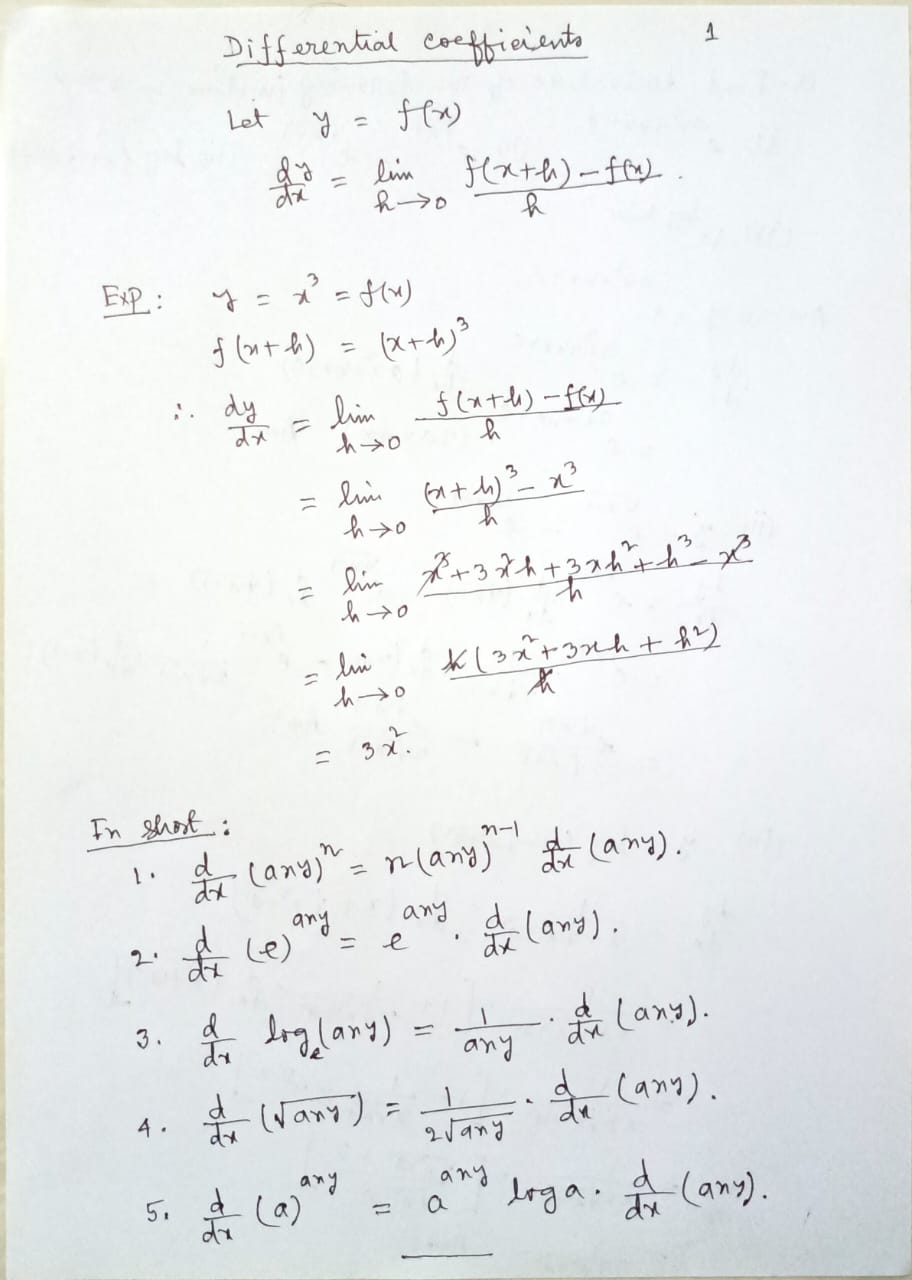 Differential coefficients 1
Let y = f(x)
dy/dx = lim h→0 f(x+h) – f(x) / h .
Exp : y = x³ = f(x)
f(x+h) = (x+h)³
∴ dy/dx = lim h→0 f(x+h) – f(x) / h
= lim h→0 (x+h)³ – x³ / h
= lim h→0 x³+3x²h+3xh²+h³–x³ / h
= lim h→0 h(3x²+3xh+h²) / h
= 3x².
In short :
1. d/dx (any)ⁿ = n(any)ⁿ⁻¹ d/dx (any).
2. d/dx (e)^any = e^any . d/dx (any).
3. d/dx logₑ(any) = 1/any . d/dx (any).
4. d/dx (√any) = 1/2√any . d/dx (any).
5. d/dx (a)^any = a^any log a . d/dx (any).